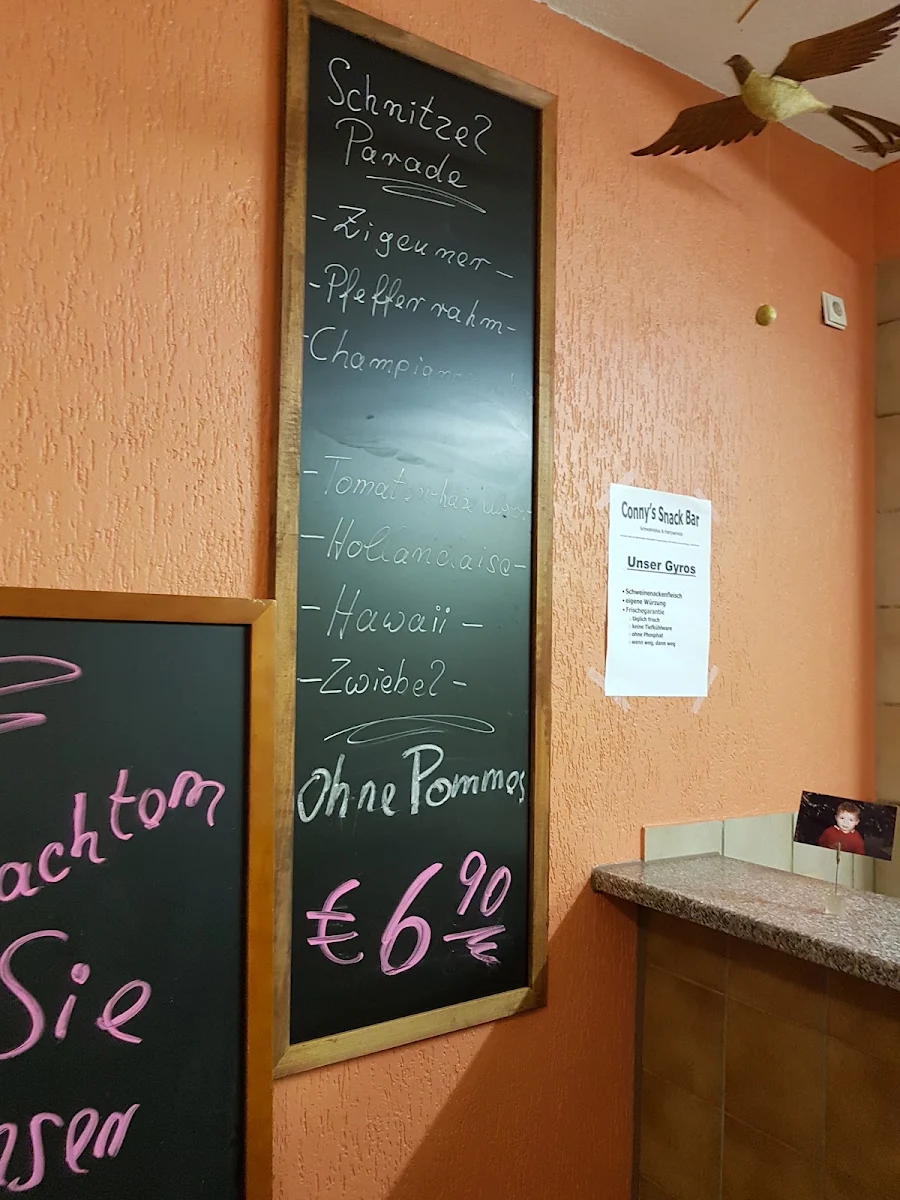 Schnitzel
Parade
- Zigeuner -
- Pfefferrahm -
-
- Hollandaise -
- Hawaii -
- Zwiebel -
Ohne Pommes
€ 6 90
achtom
Sie
nsen
Conny's Snack Bar
Unser Gyros
• Schweinenackenfleisch
• eigene Würzung
• Frischegarantie
täglich frisch
keine Tiefkühlware
ohne Phosphat
wenn weg, dann weg